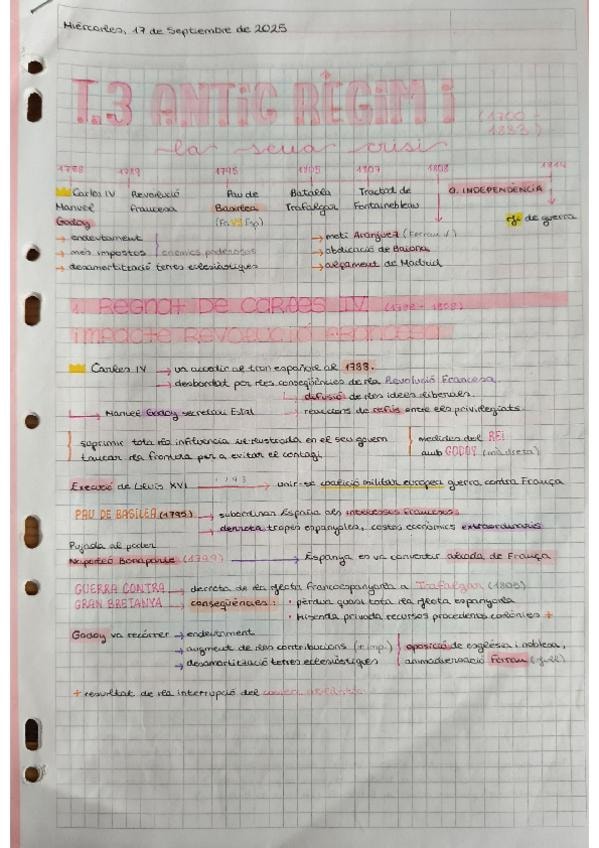 Miércoles, 17 de Septiembre de 2025
T.3 ANTIC RÈGIM i (1700 - 1833)
la seua crisi
1788 1789 1795 1805 1807 1808 1814
Carlos IV Revolució Pau de Batalla Tractat de G. INDEPENDÈNCIA
Manuel francesa Basilea Trafalgar Fontainebleau
Godoy (Fr VS Esp) fi de guerra
→ endeutament → motí Aranjuez (Ferran V)
→ més impostos enemics poderosos → abdicació de Baiona
→ desamortització terres eclesiàstiques → alçament de Madrid
1. Regnat De CARLES IV (1788 - 1808)
IMPACTE REVOLUCIÓ FRANCESA
Carles IV → va accedir al tron español al 1788.
→ desbordat por les conseqüències de la Revolució Francesa
→ difusió de les idees liberales.
→ Manuel Godoy secretari Estat → reaccions de refús entre els privilegiats.
suprimir tota la influència il·lustrada en el seu govern medides del REI
tancar la frontera per a evitar el contagi amb GODOY (mà dreta)
Execució de Lluís XVI 1793 → unir-se coalició militar europea guerra contra França
PAU DE BASILEA (1795) → subordinar España als interessos francesos
→ derrota tropes espanyoles, costos econòmics extraordinaris
Pujada al poder
Napoleó Bonaparte (1799) → Espanya en va convertir aliada de França
GUERRA CONTRA → derrota de la flota francoespanyola a Trafalgar (1805)
GRAN BRETANYA → conseqüències: • pèrdua quasi tota la flota espanyola
• Hisenda privada recursos procedents colònies +
Godoy va recórrer → endeutament
→ augment de les contribucions (+ imp.) oposició de església i noblesa,
→ desamortització terres eclesiàstiques animadversació Ferran (fill)
+ resultat de la interrupció del